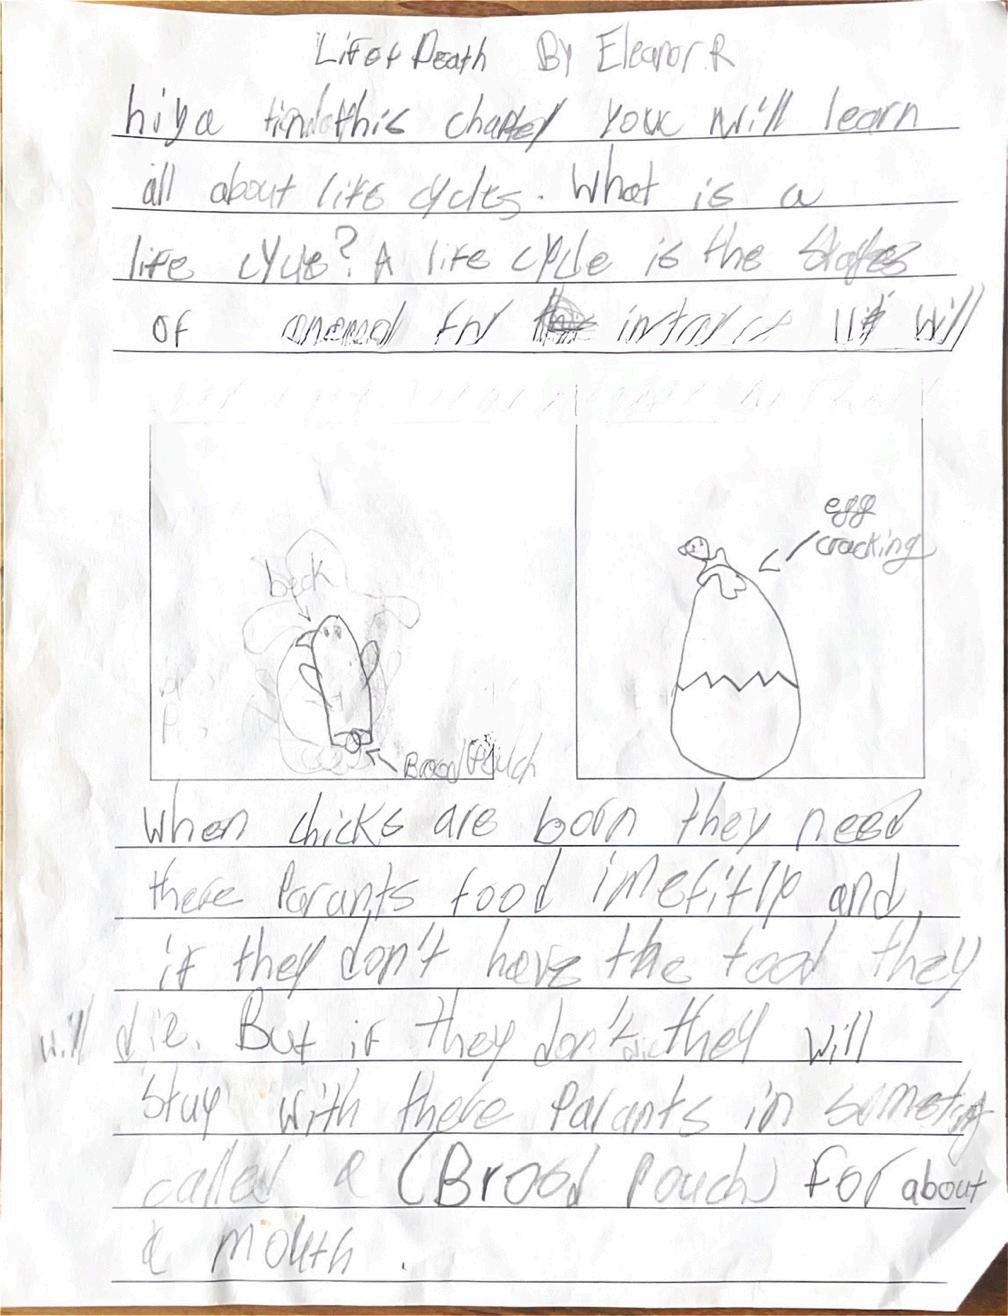 Lif of Death By Eleanor R
hiya this chapter youc will learn
all about life cycles. What is a
life cycle? A life cycle is the stages
of anemal for intains it will
egg
cracking
beck
Brood Pouch
When chicks are born they need
there Parants food imefitlp and
if they don't have the food they
will die. But if they don't die they will
stay with there Parants in someting
called a (Brood Pouch) For about
a mouth.